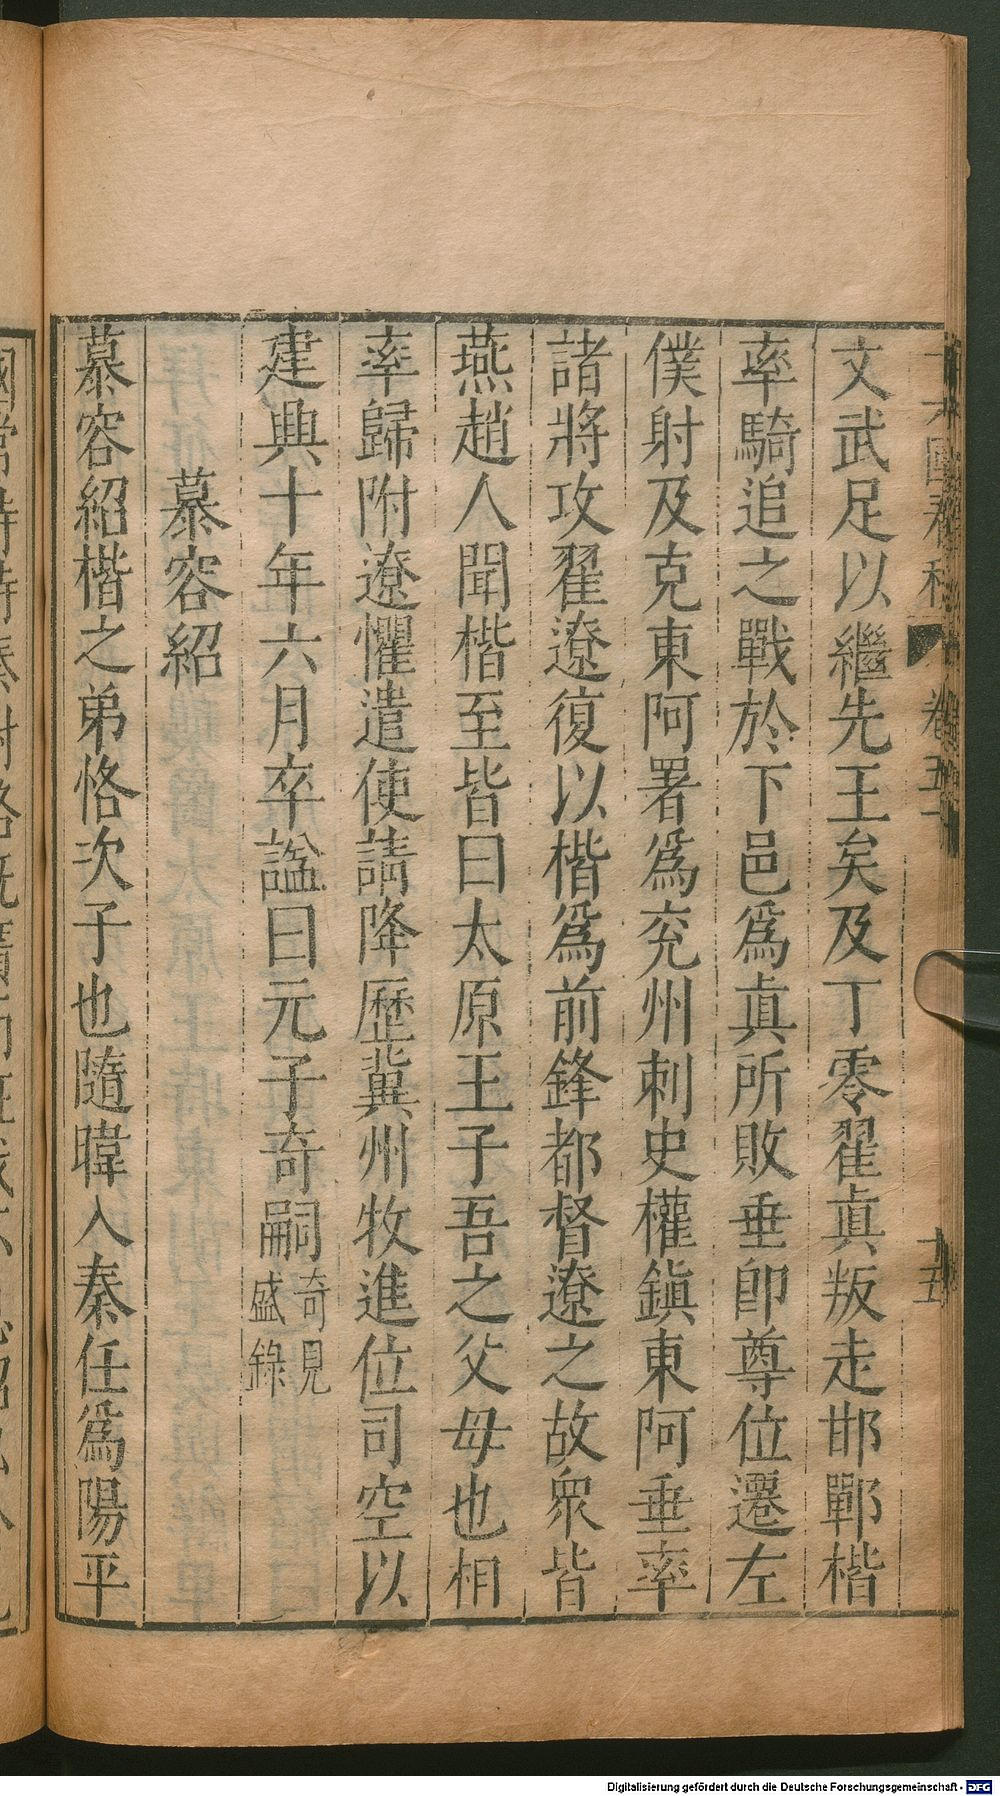 文武足以繼先王矣及丁零翟眞叛走邯鄲楷
率騎追之戰於下邑爲眞所敗垂卽尊位遷左
僕射及克東阿署爲兗州刺史權鎭東阿垂率
諸將攻翟遼復以楷爲前鋒都督遼之故衆皆
燕趙人聞楷至皆曰太原王子吾之父母也相
率歸附遼懼遣使請降歷冀州牧進位司空以
建興十年六月卒諡曰元子奇嗣奇見盛錄
慕容紹
慕容紹楷之弟恪次子也隨暐入秦任爲陽平
Digitalisierung gefördert durch die Deutsche Forschungsgemeinschaft - DFG